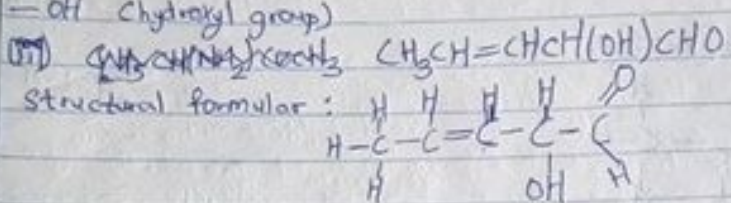 — OH (hydroxyl group)
(III) CH₃CH(NH₂)COCH₃ CH₃CH=CHCH(OH)CHO
Structural formular : H H H H O
H-C-C=C-C-C
H OH H